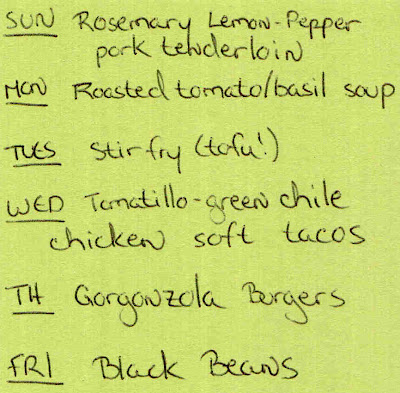 SUN Rosemary Lemon-Pepper
pork tenderloin
MON Roasted tomato/basil soup
TUES Stir fry (tofu!)
WED Tomatillo-green chile
chicken soft tacos
TH Gorgonzola Burgers
FRI Black Beans